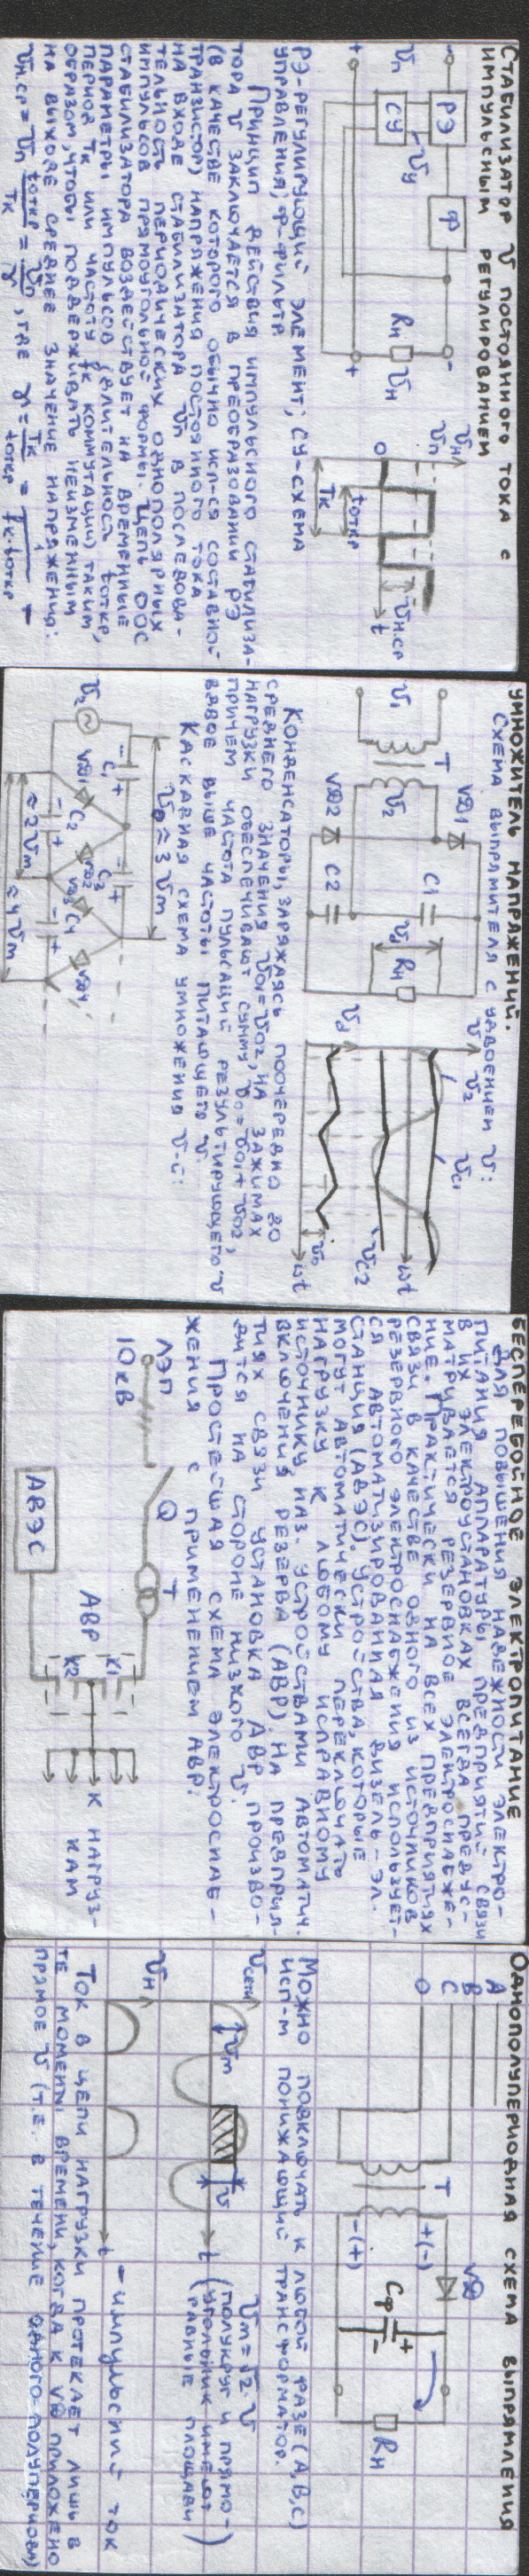 Стабилизатор U постоянного тока с
импульсным регулированием
- РЭ Ф -
Uп Uу Rн Uн
СУ
+ +
Uн
Uп
Uн.ср
0 t
tоткр
Tк
РЭ-регулирующий элемент; СУ-схема
управления; Ф-фильтр
Принцип действия импульсного стабилиза-
тора U заключается в преобразовании РЭ
(в качестве которого обычно исп-ся составной
транзистор) напряжения постоянного тока
на входе стабилизатора Uп в последова-
тельность периодических однополярных
импульсов прямоугольной формы. Цепь ООС
стабилизатора воздействует на временные
параметры импульсов (длительность tоткр,
период Tк или частоту fк коммутации) таким
образом, чтобы поддерживать неизменным
на выходе среднее значение напряжения:
Uн.ср = Uп tоткр/Tк = Uп/γ, где γ = Tк/tоткр = 1/fк·tоткр -
Умножитель напряжений.
Схема выпрямителя с удвоением U:
T VD1
U1 U2 C1 U0 Rн
VD2 C2
U U2 UC1
ωt
UC2
Uд U0
ωt
Конденсаторы, заряжаясь поочередно до
среднего значения U01=U02, на зажимах
нагрузки обеспечивают сумму U0=U01+U02,
причем частота пульсаций результирующего U
вдвое выше частоты питающего U.
Каскадная схема умножения U-й:
U0≈3Um
C1 - + C3 - +
U2 VD1 VD2 VD3 VD4
C2 - + C4 - +
≈2Um
≈4Um
Бесперебойное электропитание
Для повышения надежности электро-
питания аппаратуры предприятий связи
в их электроустановках всегда предус-
матривается резервное электроснабже-
ние. Практически на всех предприятиях
связи в качестве одного из источников
резервного электроснабжения использует-
ся автоматизированная дизель-эл.
станция (АВЭС). Устройства, которые
могут автоматически переключать
нагрузку к любому исправному
источнику, наз. устройствами автоматич.
включения резерва (АВР). На предприя-
тиях связи установка АВР произво-
дится на стороне низкого U.
Простейшая схема электроснаб-
жения с применением АВР:
ЛЭП Q T
10кВ К1
АВР К нагруз-
кам
К2
АВЭС
Однополупериодная схема выпрямления
A
B
C
O
T VD
+(-) Cф + - Rн
-(+)
Можно подключать к любой фазе (A,B,C)
исп-м понижающий трансформатор.
Uсети Um U
t
Um=√2·U
(полукруг и прямо-
угольник имеют
равные площади)
Uн
t
- импульсный ток
Ток в цепи нагрузки протекает лишь в
те моменты времени, когда к VD приложено
прямое U (т.е. в течение одного полупериода)